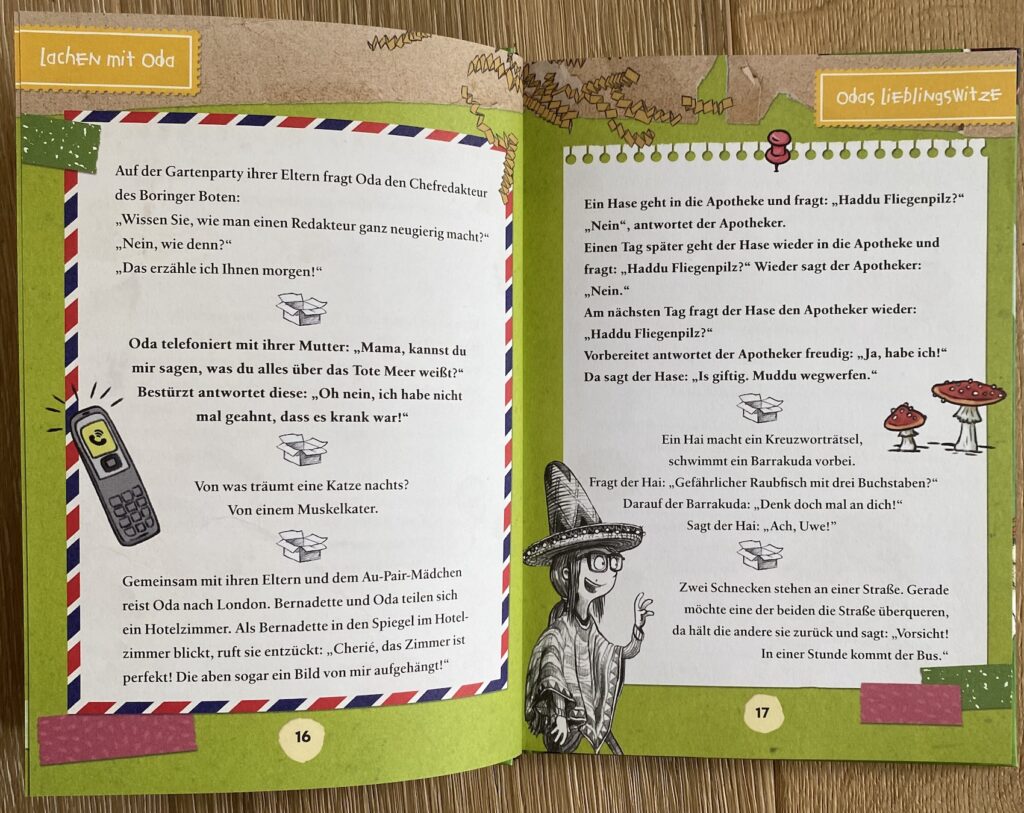 Lachen mit Oda
Auf der Gartenparty ihrer Eltern fragt Oda den Chefredakteur
des Boringer Boten:
„Wissen Sie, wie man einen Redakteur ganz neugierig macht?“
„Nein, wie denn?“
„Das erzähle ich Ihnen morgen!“
Oda telefoniert mit ihrer Mutter: „Mama, kannst du
mir sagen, was du alles über das Tote Meer weißt?“
Bestürzt antwortet diese: „Oh nein, ich habe nicht
mal geahnt, dass es krank war!“
Von was träumt eine Katze nachts?
Von einem Muskelkater.
Gemeinsam mit ihren Eltern und dem Au-Pair-Mädchen
reist Oda nach London. Bernadette und Oda teilen sich
ein Hotelzimmer. Als Bernadette in den Spiegel im Hotel-
zimmer blickt, ruft sie entzückt: „Cherié, das Zimmer ist
perfekt! Die aben sogar ein Bild von mir aufgehängt!“
16
Odas Lieblingswitze
Ein Hase geht in die Apotheke und fragt: „Haddu Fliegenpilz?“
„Nein“, antwortet der Apotheker.
Einen Tag später geht der Hase wieder in die Apotheke und
fragt: „Haddu Fliegenpilz?“ Wieder sagt der Apotheker:
„Nein.“
Am nächsten Tag fragt der Hase den Apotheker wieder:
„Haddu Fliegenpilz?“
Vorbereitet antwortet der Apotheker freudig: „Ja, habe ich!“
Da sagt der Hase: „Is giftig. Muddu wegwerfen.“
Ein Hai macht ein Kreuzworträtsel,
schwimmt ein Barrakuda vorbei.
Fragt der Hai: „Gefährlicher Raubfisch mit drei Buchstaben?“
Darauf der Barrakuda: „Denk doch mal an dich!“
Sagt der Hai: „Ach, Uwe!”
Zwei Schnecken stehen an einer Straße. Gerade
möchte eine der beiden die Straße überqueren,
da hält die andere sie zurück und sagt: „Vorsicht!
In einer Stunde kommt der Bus.“
17